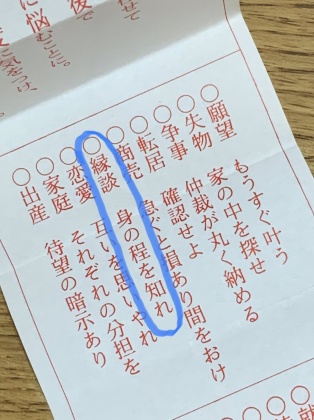 に悩むことに。
気をつけ、
○願望 もうすぐ叶う
○失物 家の中を探せ
○争事 仲裁が丸く納める
○転居 確認せよ
○商売 急ぐと損あり間をおけ
○縁談 身の程を知れ
○恋愛 互いを思いやれ
○家庭 それぞれの分担を
○出産 待望の暗示あり